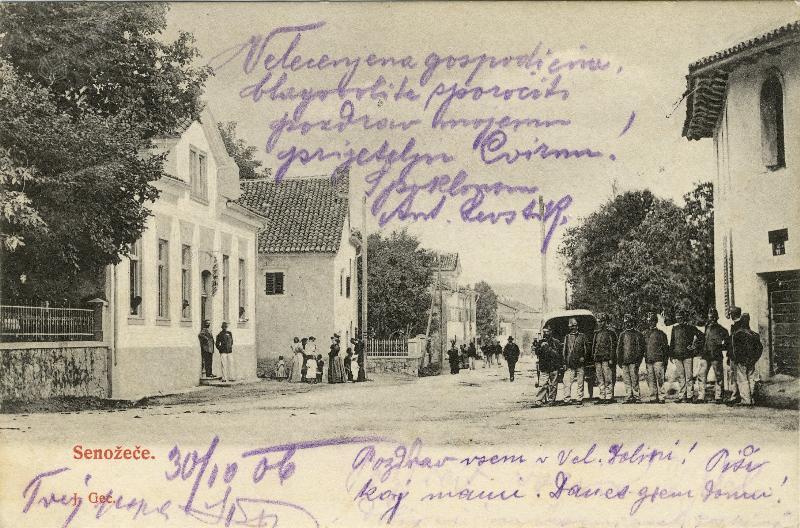 Velecenjena gospodična,
blagovolite sporočiti
pozdrav mojemu
prijatelju Cvirnu!
S poklonom
Ant.
Senožeče.
30/10 06
Pozdrav vsem v Vel. Dolini! Piši
kaj mami. Danes grem domu!
Tvoj
J. Geč.